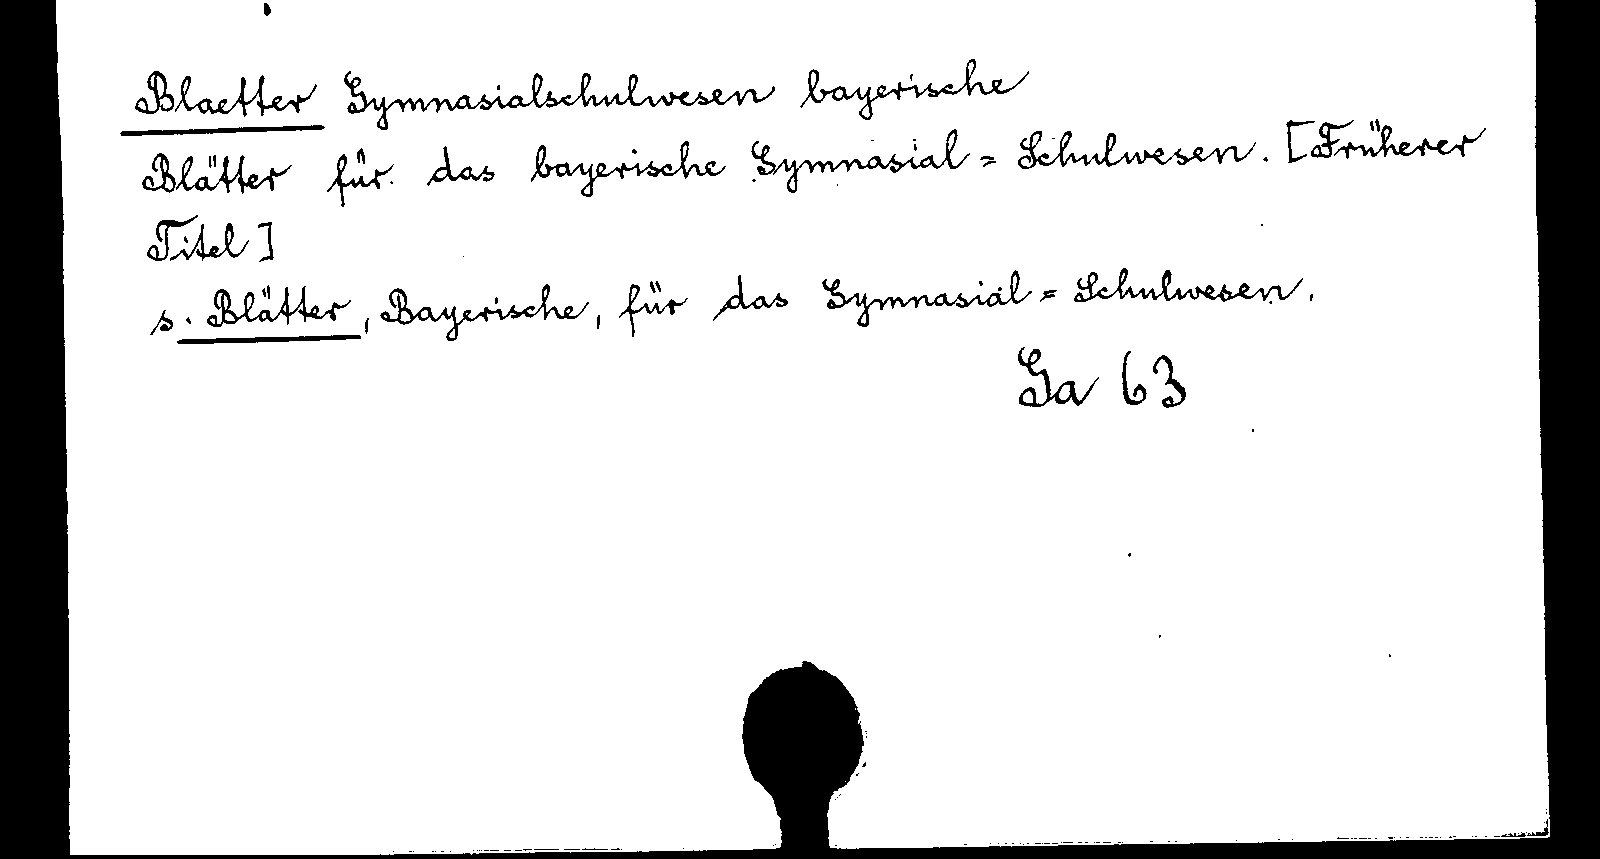 Blaetter Gymnasialschulwesen bayerische
Blätter für das bayerische Gymnasial = Schulwesen. [Früherer
Titel]
s. Blätter, Bayerische, für das Gymnasial = Schulwesen.
Ga 63